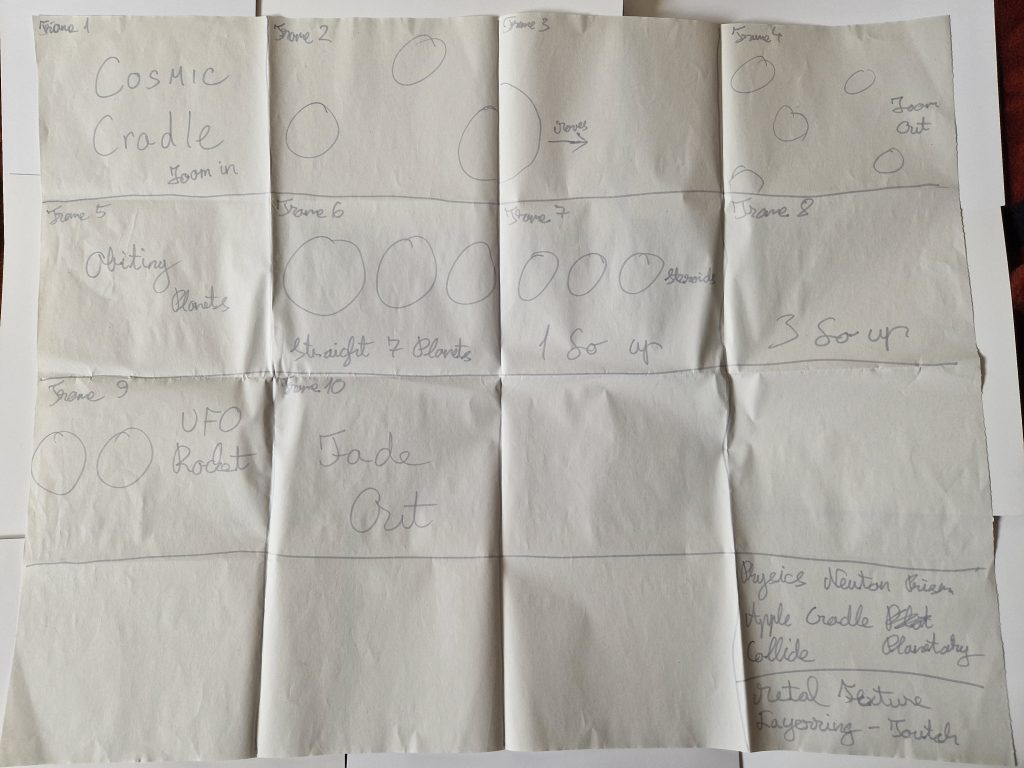 Frame 1
COSMIC
Cradle
Zoom in
Frame 2
Frame 3
Moves
Frame 4
Zoom
Out
Frame 5
Obiting
Planets
Frame 6
Straight 7 Planets
Frame 7
Steroids
1 Go up
Frame 8
3 Go up
Frame 9
UFO
Rocket
Frame 10
Fade
Out
Physics Newton Prism
Apple Cradle
Collide Planetary
Metal Texture
Layerring -